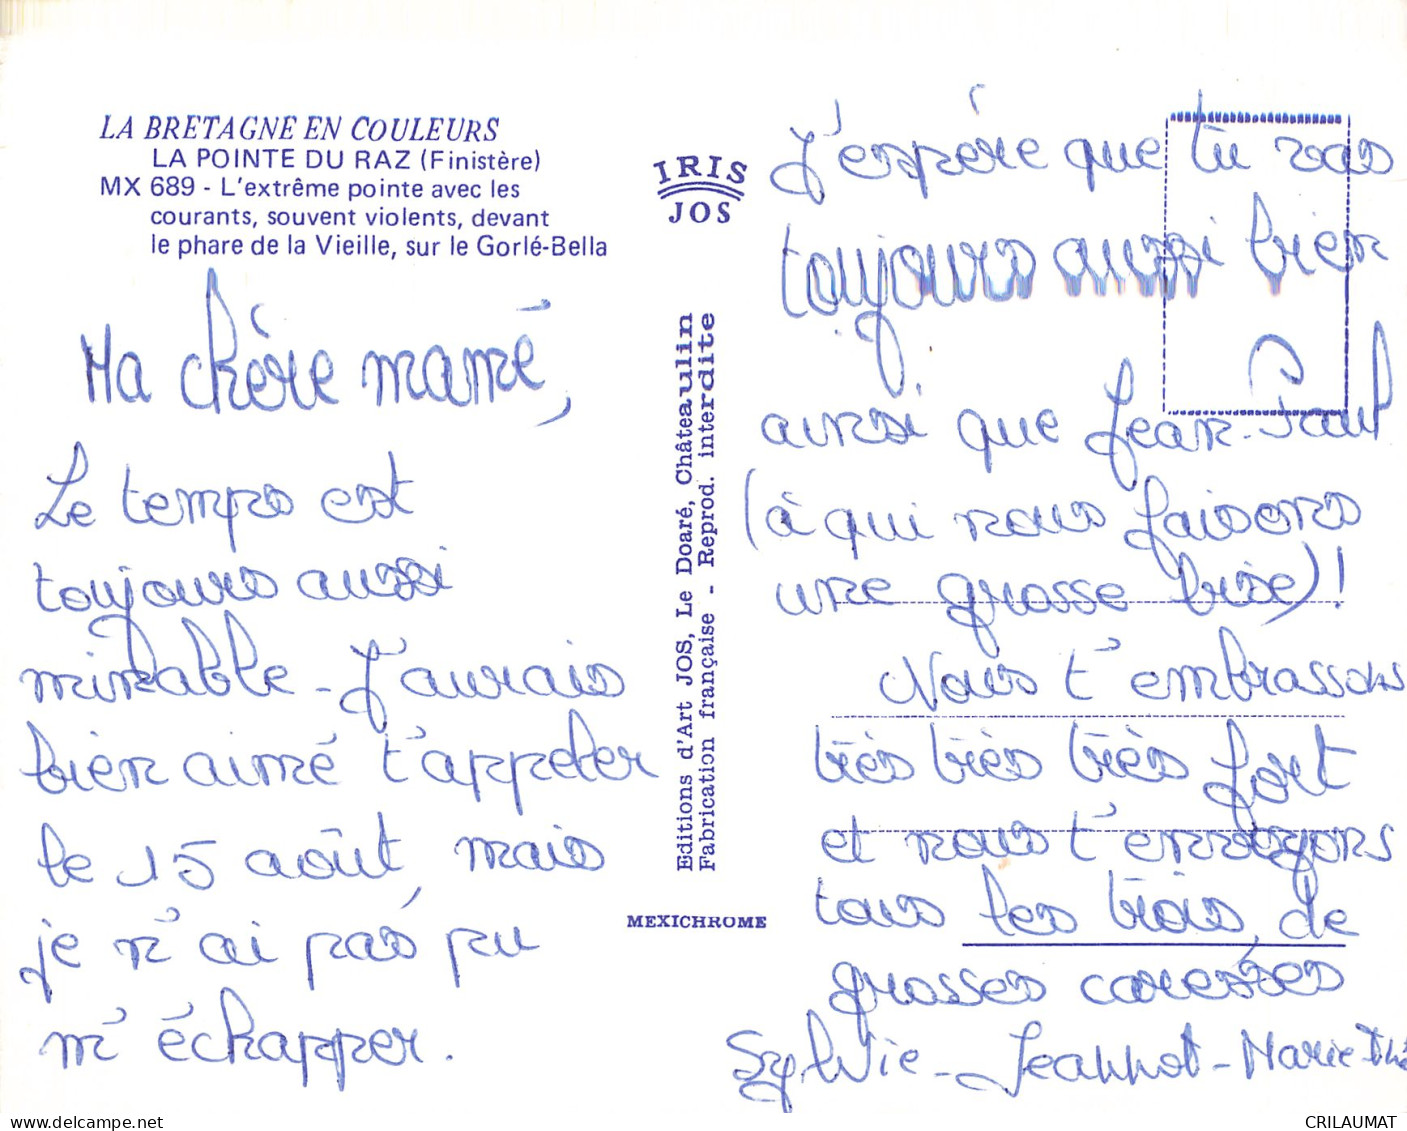 LA BRETAGNE EN COULEURS
LA POINTE DU RAZ (Finistère)
MX 689 - L'extrême pointe avec les
courants, souvent violents, devant
le phare de la Vieille, sur le Gorlé-Bella
Ma chère mamé,
Le temps est
toujours aussi
minable - J'aurais
bien aimé t'appeler
le 15 août, mais
je n'ai pas pu
m'échapper.
IRIS
JOS
Editions d'Art JOS, Le Doaré, Châteaulin
Fabrication française - Reprod. interdite
MEXICHROME
J'espére que tu vas
toujours aussi bien
ainsi que Jean-Paul
(à qui nous faisons
une grosse bise)!
Nous t'embrassons
très très très fort
et nous t'envoyons
tous les trois, de
grosses caresses
Sylvie - Jeannot - Marie-Thé
CRILAUMAT